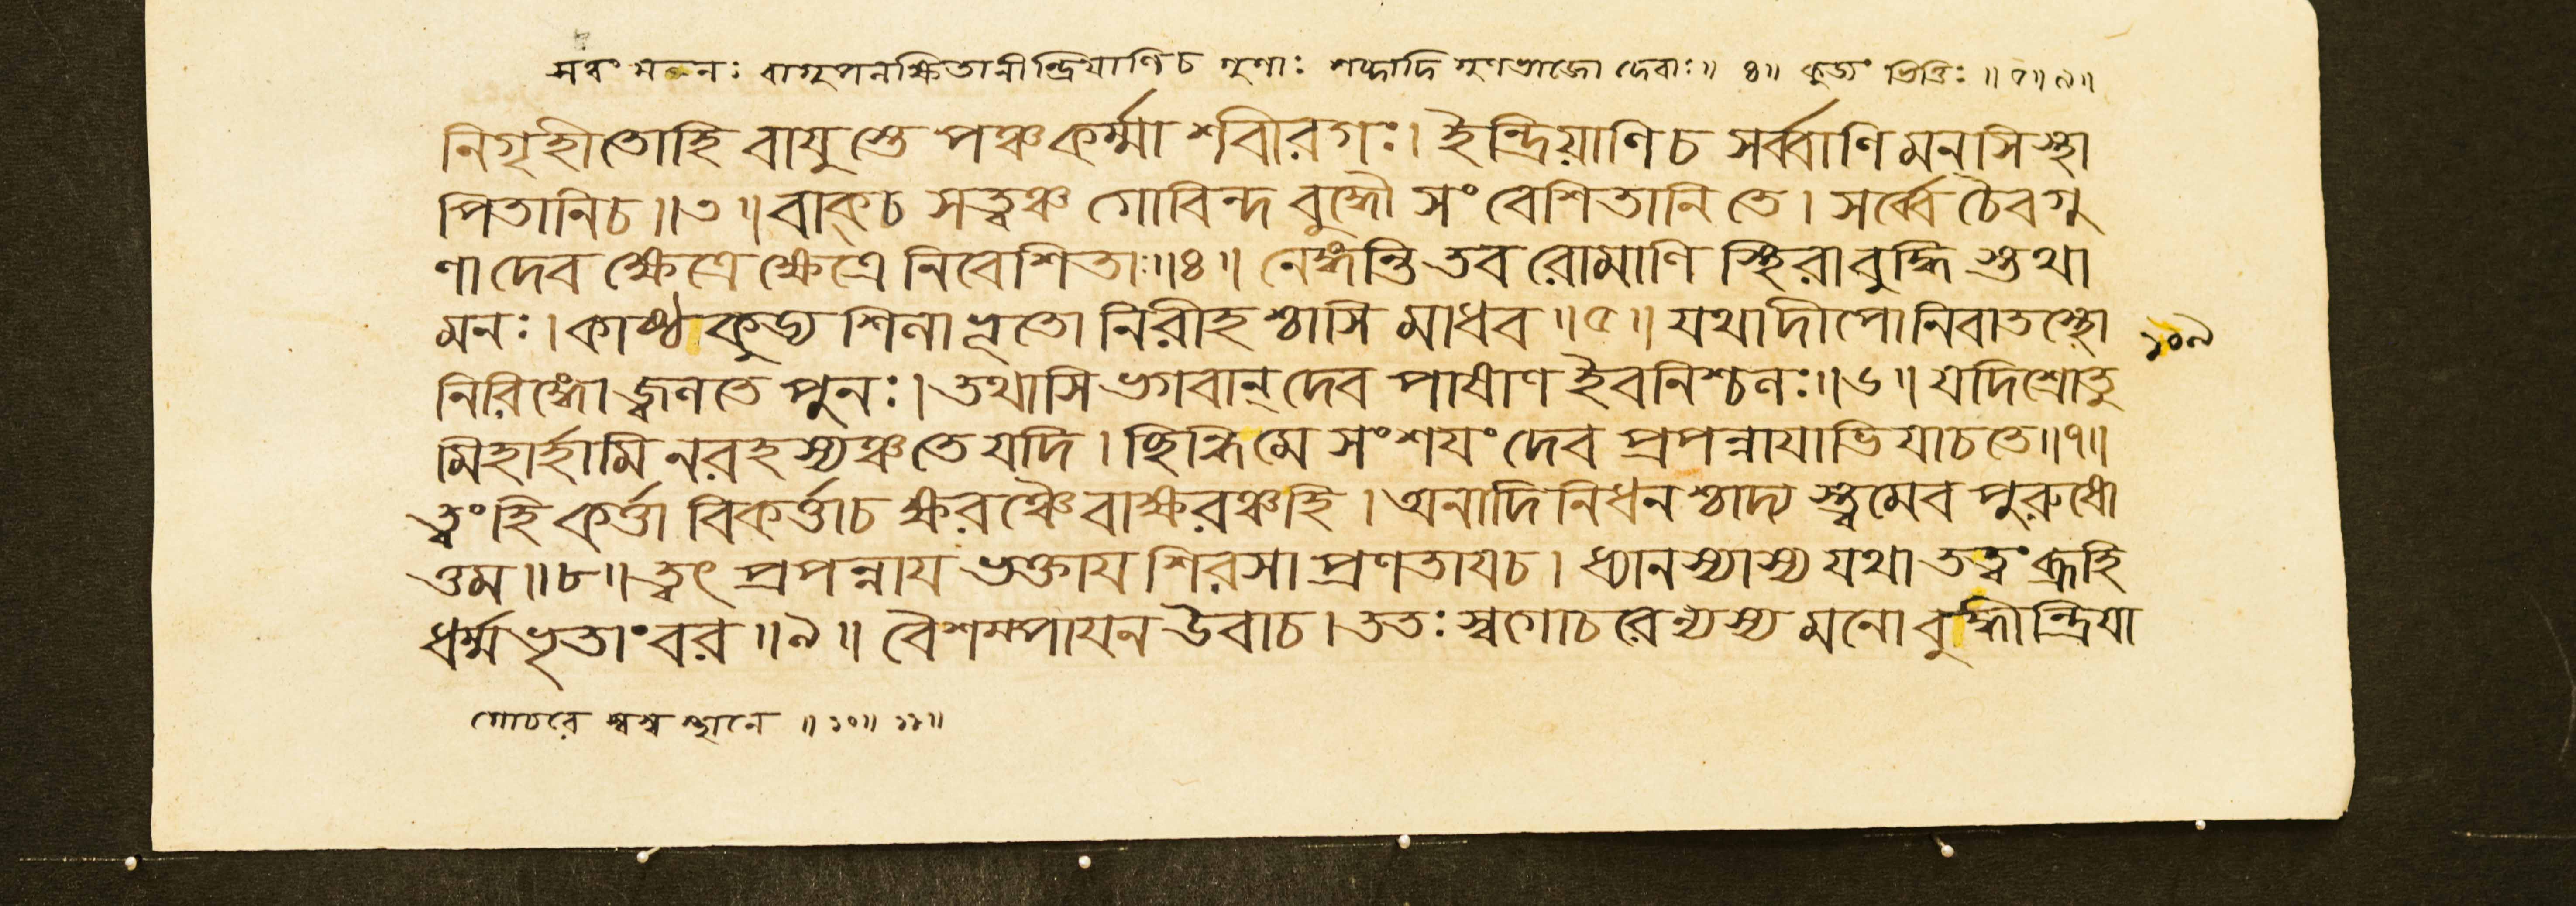 সত্বং মনঃ বাগুপলক্ষিতানীন্দ্রিয়াণিচ গুণাঃ শব্দাদি গুণভাজো দেবাঃ॥ ৪॥ কুড্যং ভিত্তিঃ॥ ৫॥ ৯॥
নিগৃহীতোহি বাযুস্তে পঞ্চকর্ম্মা শরীরগঃ। ইন্দ্রিয়াণিচ সর্ব্বাণি মনসিস্থা
পিতানিচ॥৩॥ বাক্চ সত্ত্বঞ্চ গোবিন্দ বুদ্ধৌ সংবেশিতানি তে। সর্ব্বে চৈবগু
ণা দেব ক্ষেত্রে ক্ষেত্রে নিবেশিতাঃ॥৪॥ নেঙ্গন্তি তব রোমাণি স্থিরাবুদ্ধি স্তথা
মনঃ। কাষ্ঠকুড্য শিলাভূতো নিরীহশ্চাসি মাধব॥৫॥ যথাদীপো নিবাতস্থো
১০৯
নিরিঙ্গো জ্বলতে পুনঃ। তথাসি ভগবান্ দেব পাষাণ ইবনিশ্চলঃ॥৬॥ যদিশ্রোতু
মিহার্হামি নরহস্যঞ্চ তে যদি। ছিন্ধিমে সংশযং দেব প্রপন্নাযাভিযাচতে॥৭॥
ত্বংহি কর্ত্তা বিকর্ত্তাচ ক্ষরঞ্চৈবাক্ষরঞ্চহি। অনাদিনিধনশ্চাদ্য স্ত্বমেব পুরুষো
ত্তম॥৮॥ ত্বৎ প্রপন্নায ভক্তায শিরসা প্রণতাযচ। ধ্যানস্যাস্য যথা তত্ত্বং ব্রূহি
ধর্ম্মভৃতাংবর॥৯॥ বৈশম্পাযন উবাচ। ততঃ স্বগোচরেন্যস্য মনোবুদ্ধীন্দ্রিযা
গোচরে স্বস্ব স্থানে॥১০॥ ১১॥